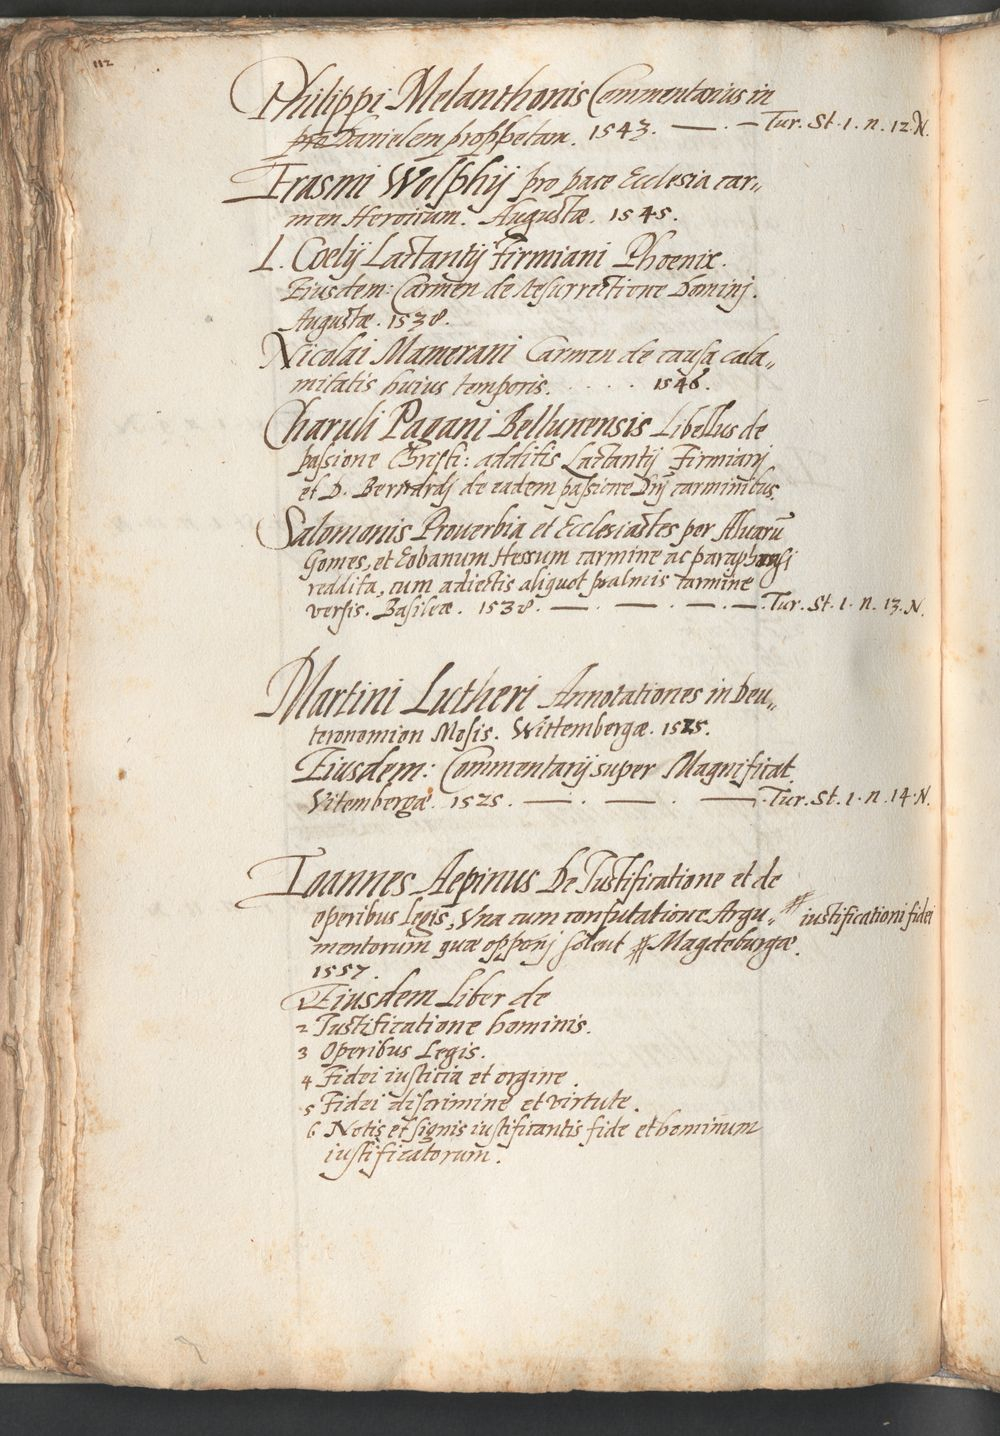 112
Philippi Melanthonis Commentarius in
pro Danielem prophetam. 1543. — . — Tur. St. 1. n. 12. N.
Erasmi Wolphij pro pace Ecclesia car„
men Heroicum. Augustæ. 1545.
L. Coelij Lactantij Firmiani Phoenix.
Eiusdem: Carmen de resurrectione Dominj.
Augustæ. 1538.
Nicolai Mamerani Carmen de causa cala„
mitatis huius temporis. . . . . 1546.
Charuli Pagani Bellunensis Libellus de
passione Christi: additis Lactantij Firmianj
et D. Bernardj de eadem passione Dnj carminibus.
Salomonis Prouerbia et Ecclesiastes per Aluarū
Gomes, et Eobanum Hessum carmine ac paraphrasi
reddita, cum adiectis aliquot psalmis carmine
versis. Basileæ. 1538. — . — . — . — . Tur. St. 1. n. 13. N.
Martini Lutheri Annotationes in Deu„
teronomion Mosis. Wittembergæ. 1525.
Eiusdem: Commentarij super Magnificat.
Vitembergæ. 1525. — . — . — . Tur. St. 1. n. 14. N.
Ioannes Aepinus De Iustificatione et de
operibus legis, Vna cum confutatione Argu„ # iustificationi fidei
mentorum quæ opponj solent # Magdeburgæ.
1557.
1 Eiusdem Liber de
2 Iustificatione hominis.
3 Operibus Legis.
4 Fidei iusticia et orgine.
5 Fidei discrimine et virtute.
6 Notis et signis iustificantis fide et hominum
iustificatorum.